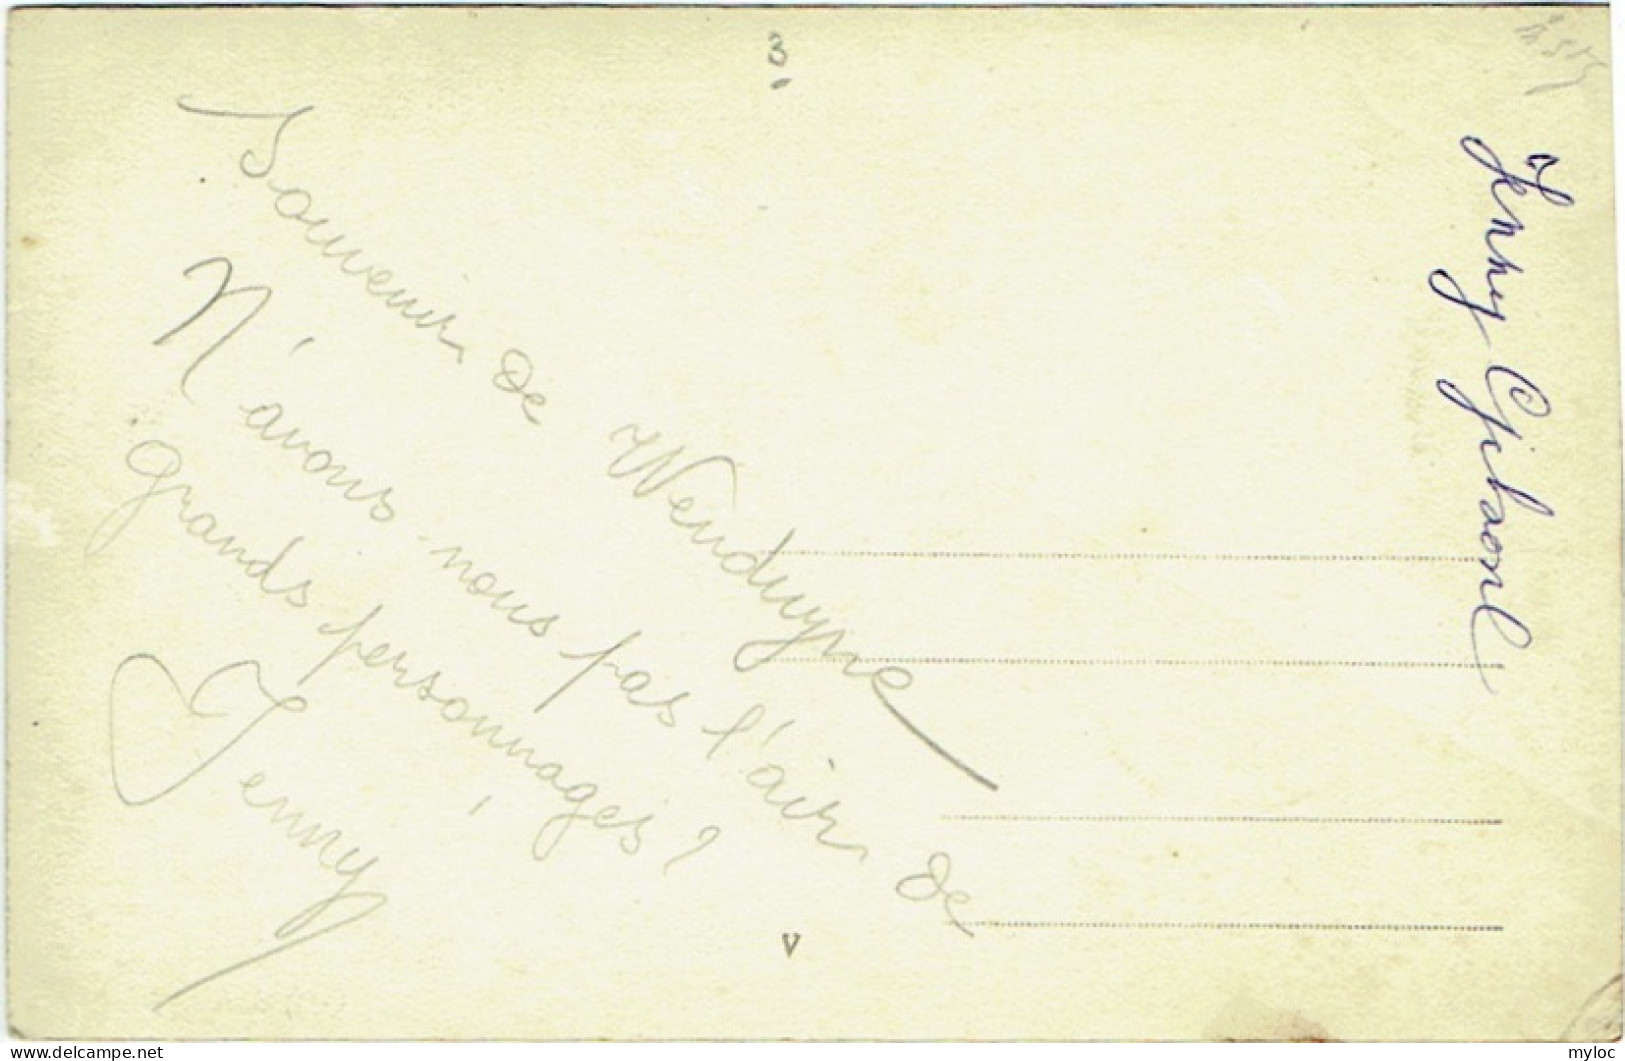 Souvenir de Wenduyne
N'avons-nous pas l'air de
grands personnages?
Jenny
Jenny
V
delcampe.net
myloc